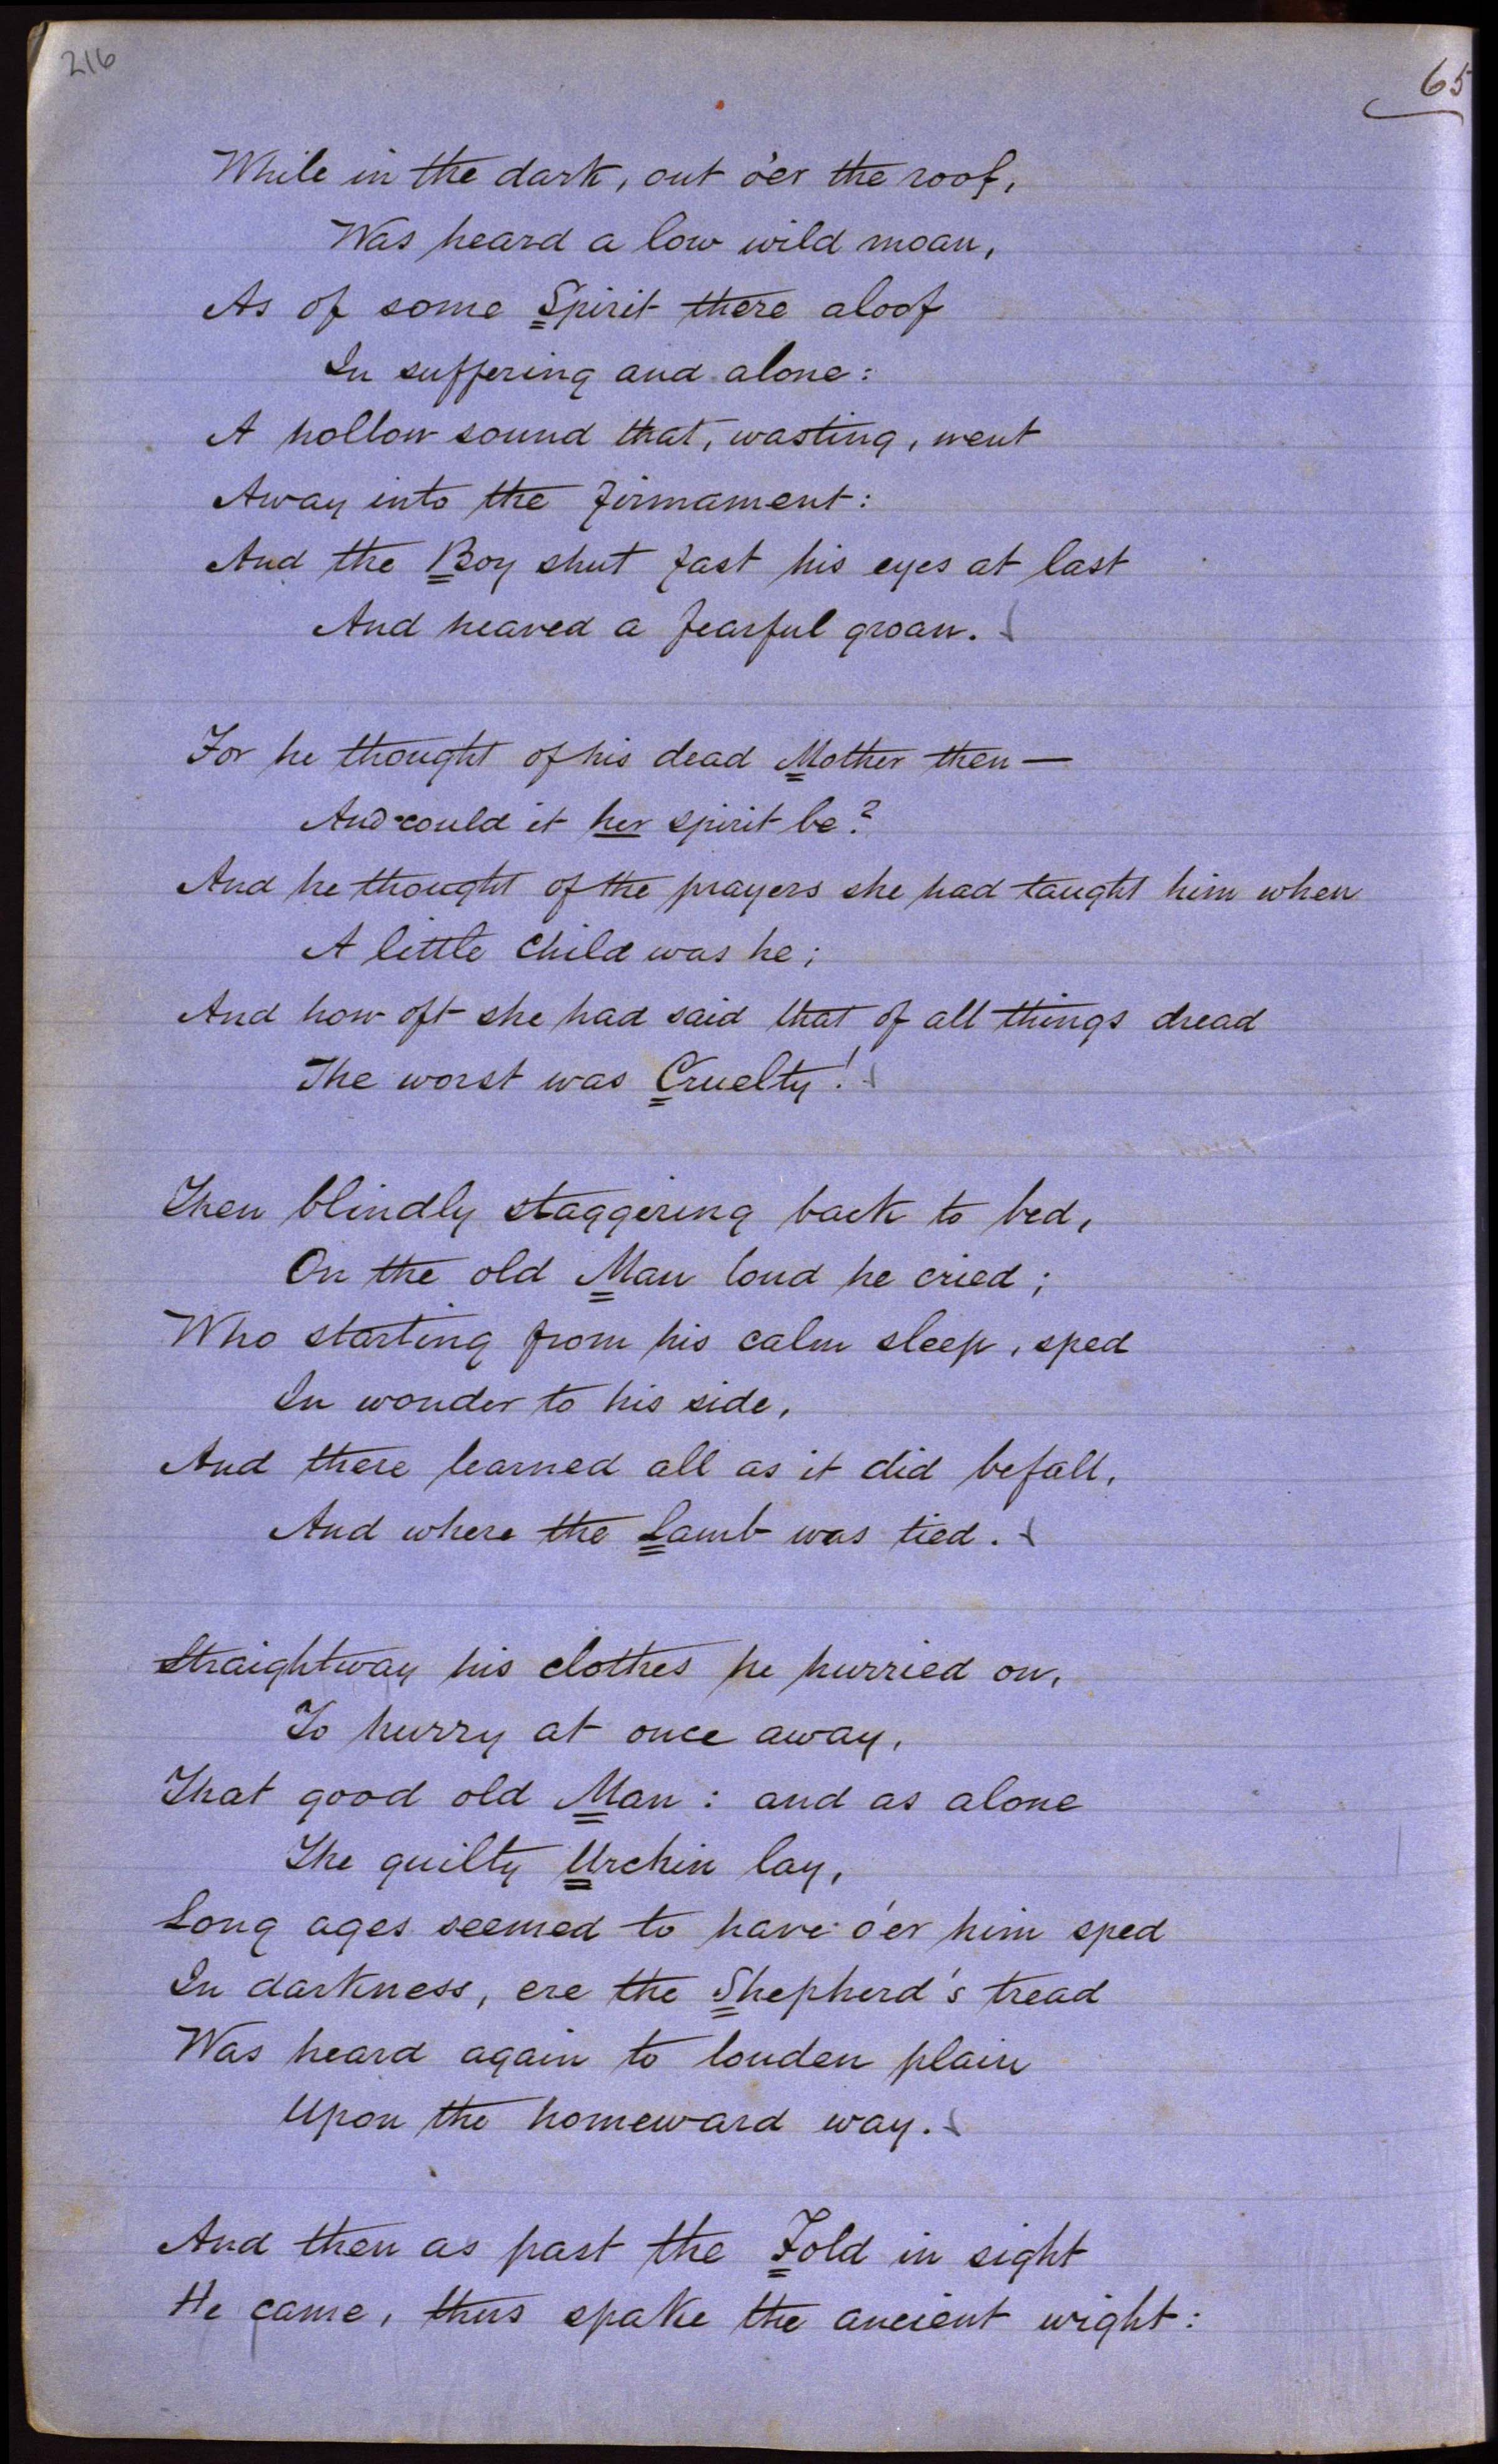 216
65
While in the dark, out o'er the roof,
Was heard a low wild moan,
As of some Spirit there aloof
In suffering and alone:
A hollow sound that, wasting, went
Away into the firmament:
And the Boy shut fast his eyes at last
And heaved a fearful groan.
For he thought of his dead Mother then—
And could it her spirit be?
And he thought of the prayers she had taught him when
A little child was he;
And how oft she had said that of all things dread
The worst was Cruelty!
Then blindly staggering back to bed,
On the old Man loud he cried;
Who starting from his calm sleep, sped
In wonder to his side,
And there learned all as it did befall,
And where the Lamb was tied.
Straightway his clothes he hurried on,
To hurry at once away,
That good old Man: and as alone
The guilty Urchin lay,
Long ages seemed to have o'er him sped
In darkness, ere the Shepherd's tread
Was heard again to louden plain
Upon the homeward way.
And then as past the Fold in sight
He came, thus spake the ancient wight: